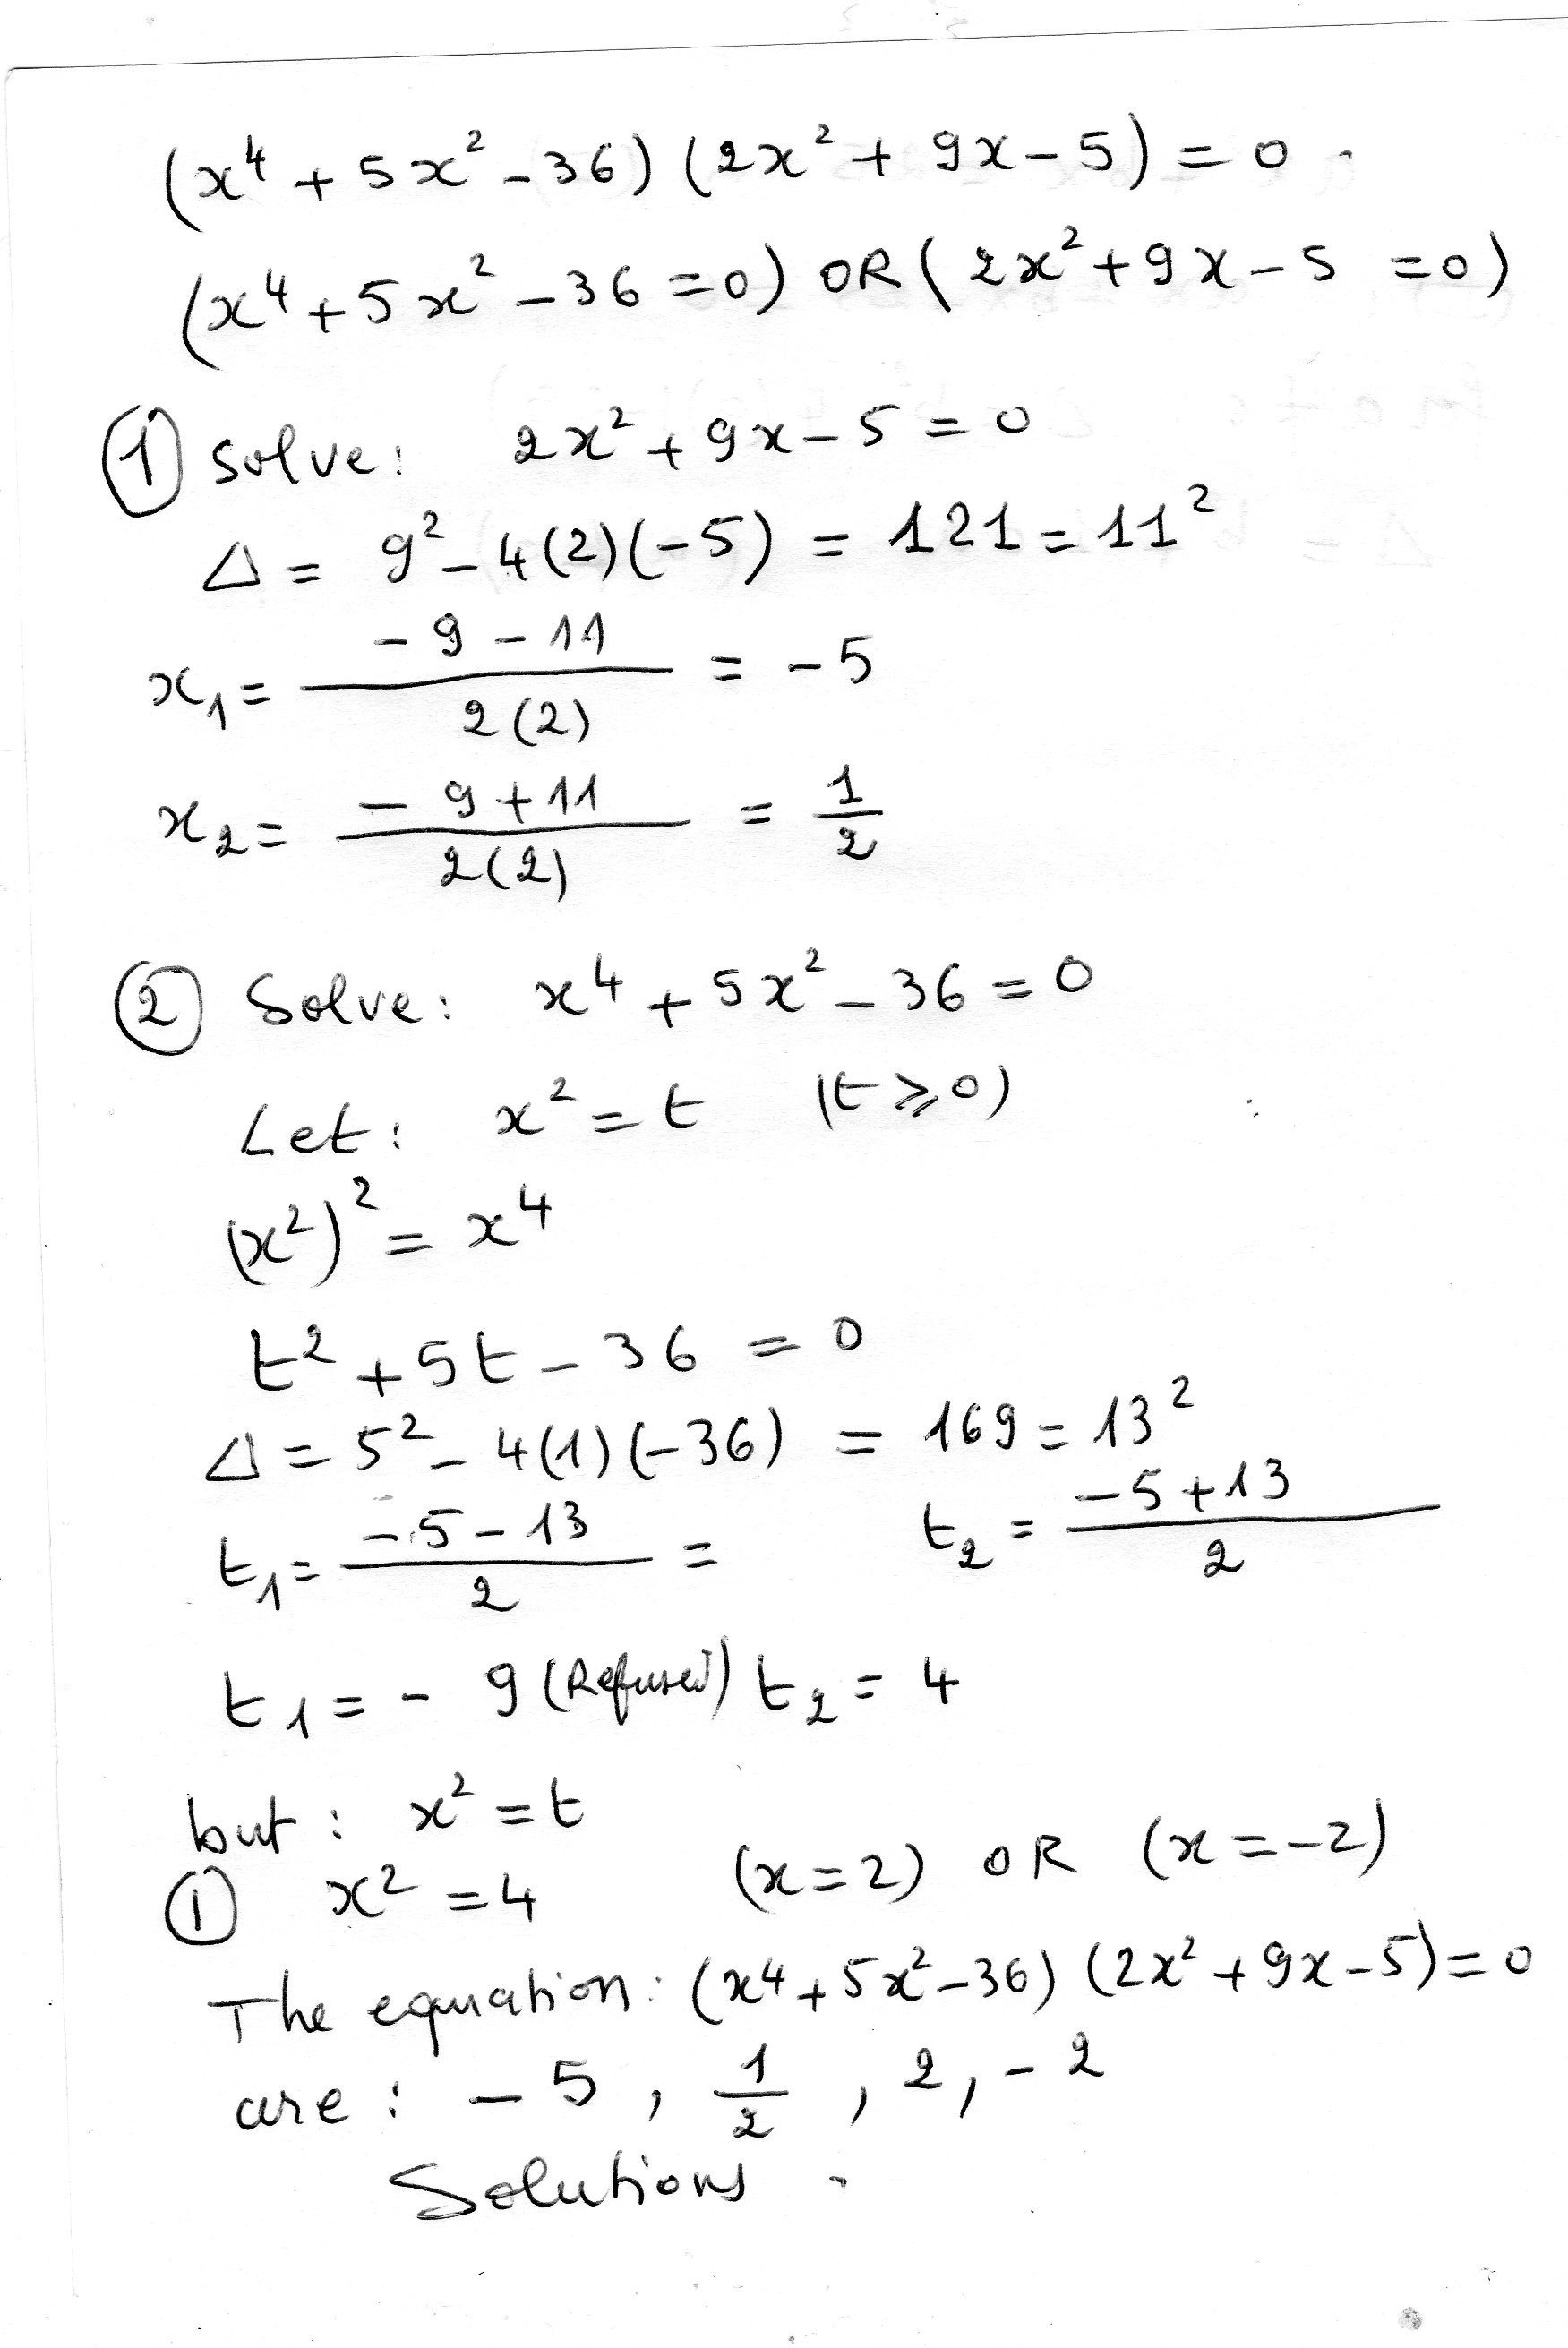 (x⁴ + 5x² - 36) (2x² + 9x - 5) = 0 .
(x⁴ + 5x² - 36 = 0) OR (2x² + 9x - 5 = 0)
① solve: 2x² + 9x - 5 = 0
Δ = 9² - 4(2)(-5) = 121 = 11²
x₁ = (-9 - 11)/(2(2)) = -5
x₂ = (-9 + 11)/(2(2)) = 1/2
② Solve: x⁴ + 5x² - 36 = 0
Let: x² = t (t ⩾ 0)
(x²)² = x⁴
t² + 5t - 36 = 0
Δ = 5² - 4(1)(-36) = 169 = 13²
t₁ = (-5 - 13)/2 = t₂ = (-5 + 13)/2
t₁ = -9 (Refused) t₂ = 4
but: x² = t
① x² = 4 (x = 2) OR (x = -2)
The equation: (x⁴ + 5x² - 36) (2x² + 9x - 5) = 0
are: -5, 1/2, 2, -2
Solutions .